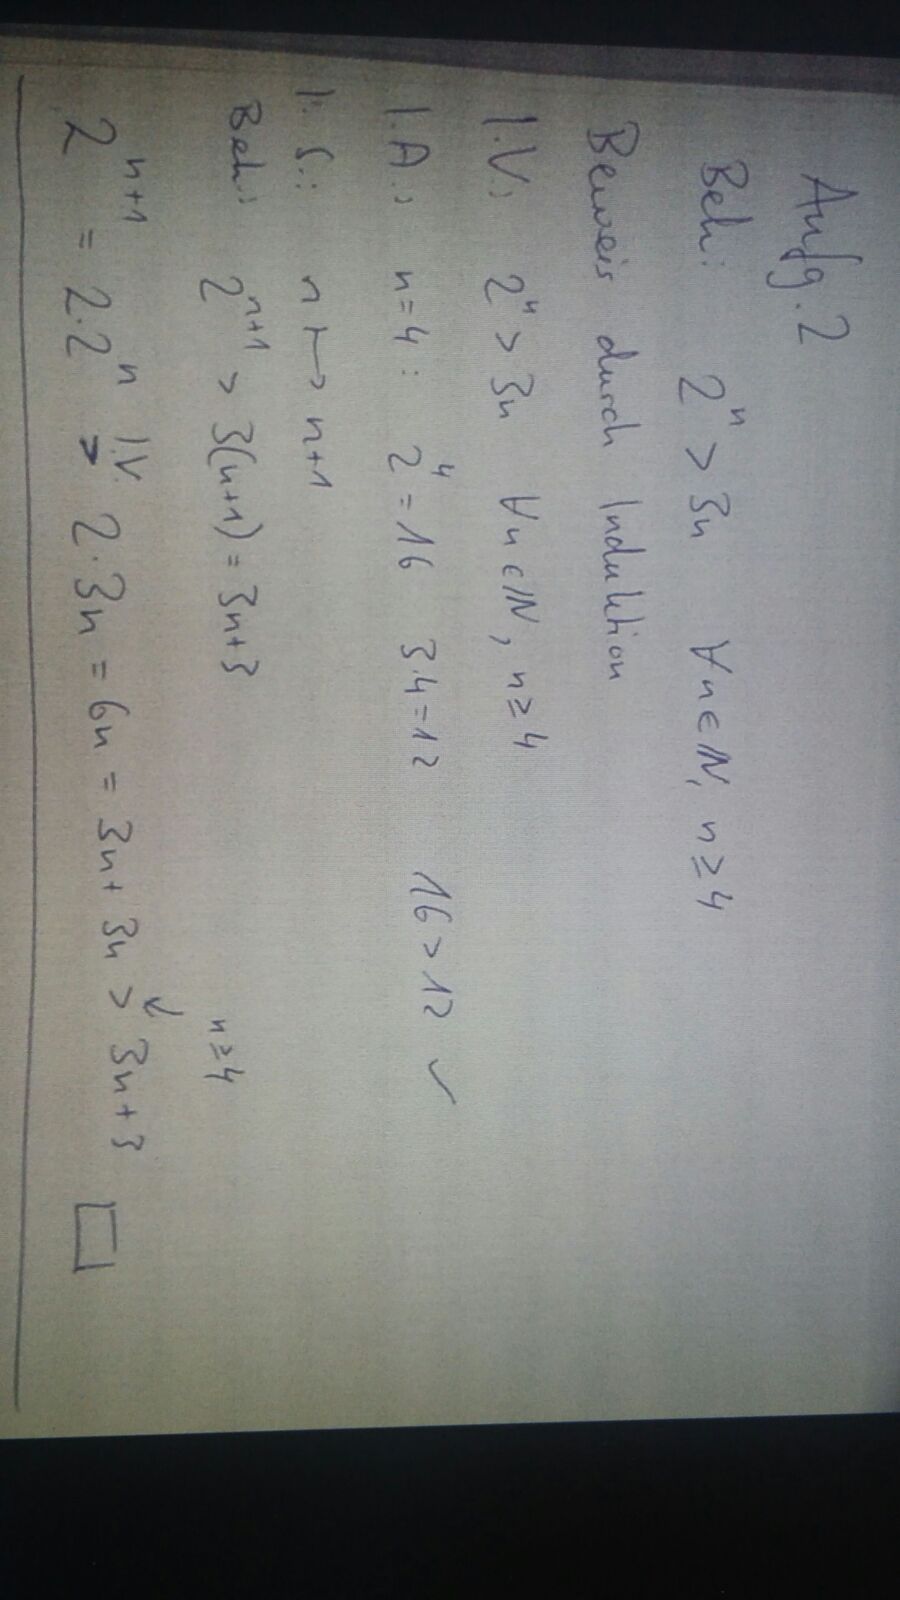 Aufg. 2
Beh: 2^n > 3n ∀n∈ℕ, n≥4
Beweis durch Induktion
I.V: 2^n > 3n ∀n∈ℕ, n≥4
I.A.: n=4: 2^4=16 3·4=12 16>12 ✓
I.S.: n ↦ n+1
Beh: 2^{n+1} > 3(n+1) = 3n+3
n≥4
2^{n+1} = 2·2^n I.V. > 2·3n = 6n = 3n + 3n > 3n+3 □